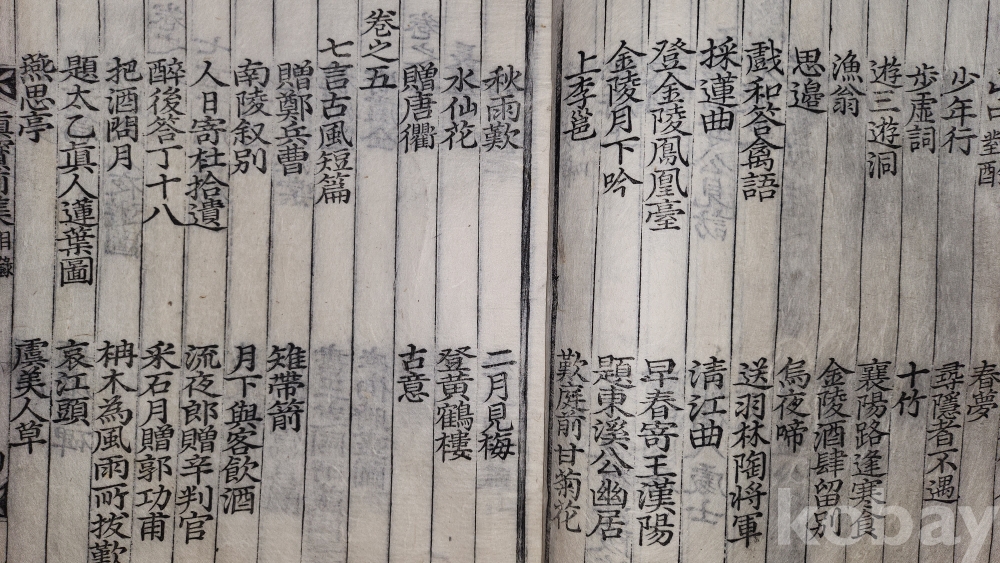 對酌 春夢
少年行 尋隱者不遇
步虛詞 十竹
遊三遊洞 襄陽路逢寒食
漁翁 金陵酒肆留別
思邊 烏夜啼
戲和答禽語 送羽林陶將軍
採蓮曲 淸江曲
登金陵鳳凰臺 早春寄王漢陽
金陵月下吟 題東溪公幽居
上李邕 歎庭前甘菊花
秋雨歎 二月見梅
水仙花 登黃鶴樓
贈唐衢 古意
卷之五
七言古風短篇
贈鄭兵曹 雉帶箭
南陵叙別 月下與客飮酒
人日寄杜拾遺 流夜郎贈辛判官
醉後答丁十八 采石月贈郭功甫
把酒問月 枏木為風雨所拔歎
題太乙眞人蓮葉圖 哀江頭
燕思亭 虞美人草
kobay